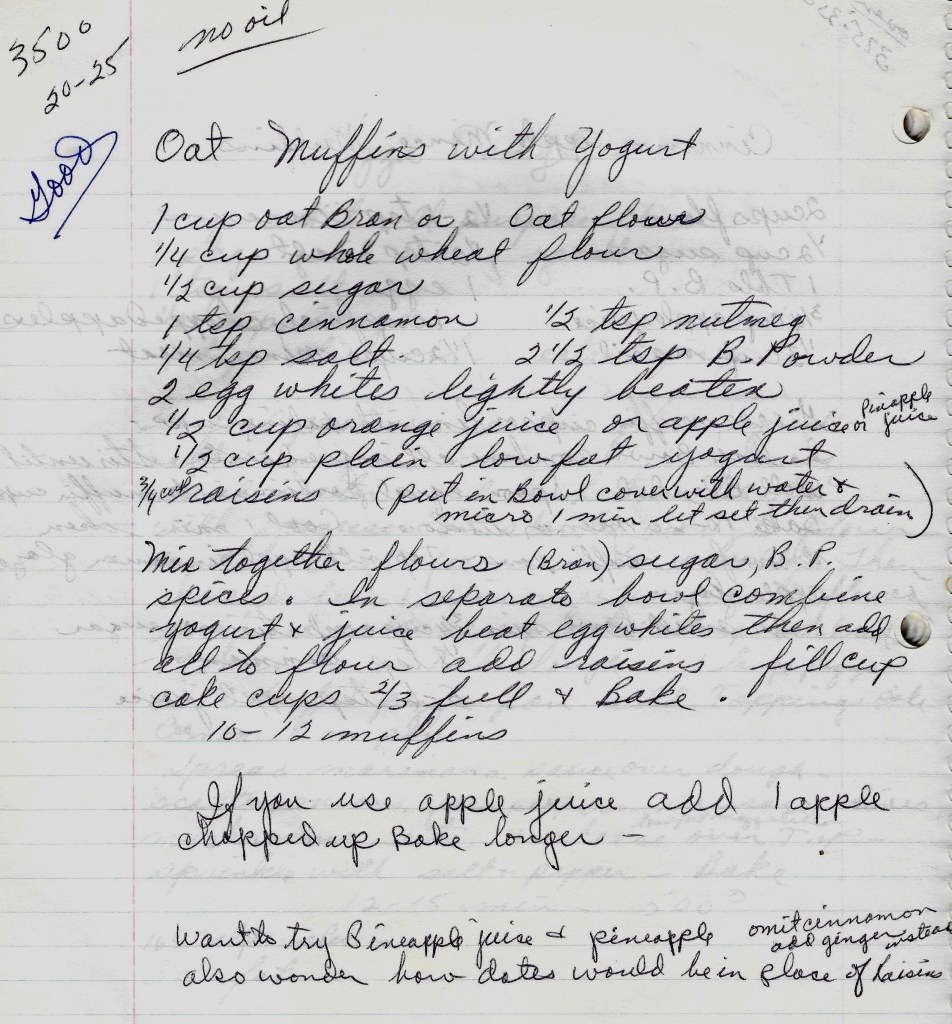 no oil
350°
20-25
Good
Oat Muffins with Yogurt
1 cup oat Bran or Oat flour
1/4 cup whole wheat flour
1/2 cup sugar
1 tsp cinnamon 1/2 tsp nutmeg
1/4 tsp salt 2 1/2 tsp B. Powder
2 egg whites lightly beaten
1/2 cup orange juice or apple juice or pineapple juice
1/2 cup plain lowfat yogurt
3/4 cup raisins (put in Bowl cover with water &
micro 1 min let set then drain)
Mix together flours (Bran) sugar, B.P.
spices. In separate bowl combine
yogurt & juice beat egg whites then add
all to flour add raisins fill cup
cake cups 2/3 full & Bake.
10-12 muffins
If you use apple juice add 1 apple
chopped up Bake longer —
Want to try Pineapple juice & pineapple omit cinnamon
add ginger instead
also wonder how dates would be in place of Raisins